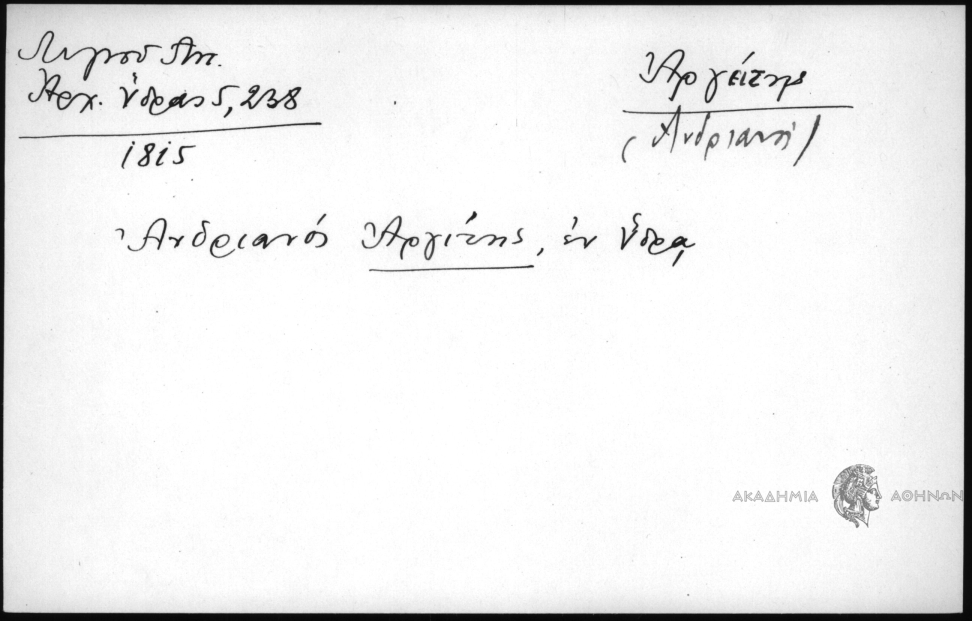 Λιγνού Αντ.
Ἀρχ. Ὕδρας 5, 238
1815
Ἀργείτης
(Ἀνδριανός)
Ἀνδριανός Ἀργίτης, ἐν Ὕδρᾳ
ΑΚΑΔΗΜΙΑ ΑΘΗΝΩΝ